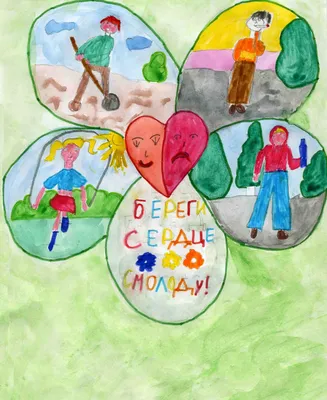 БЕРЕГИ
СЕРДЦЕ
СМОЛОДУ!